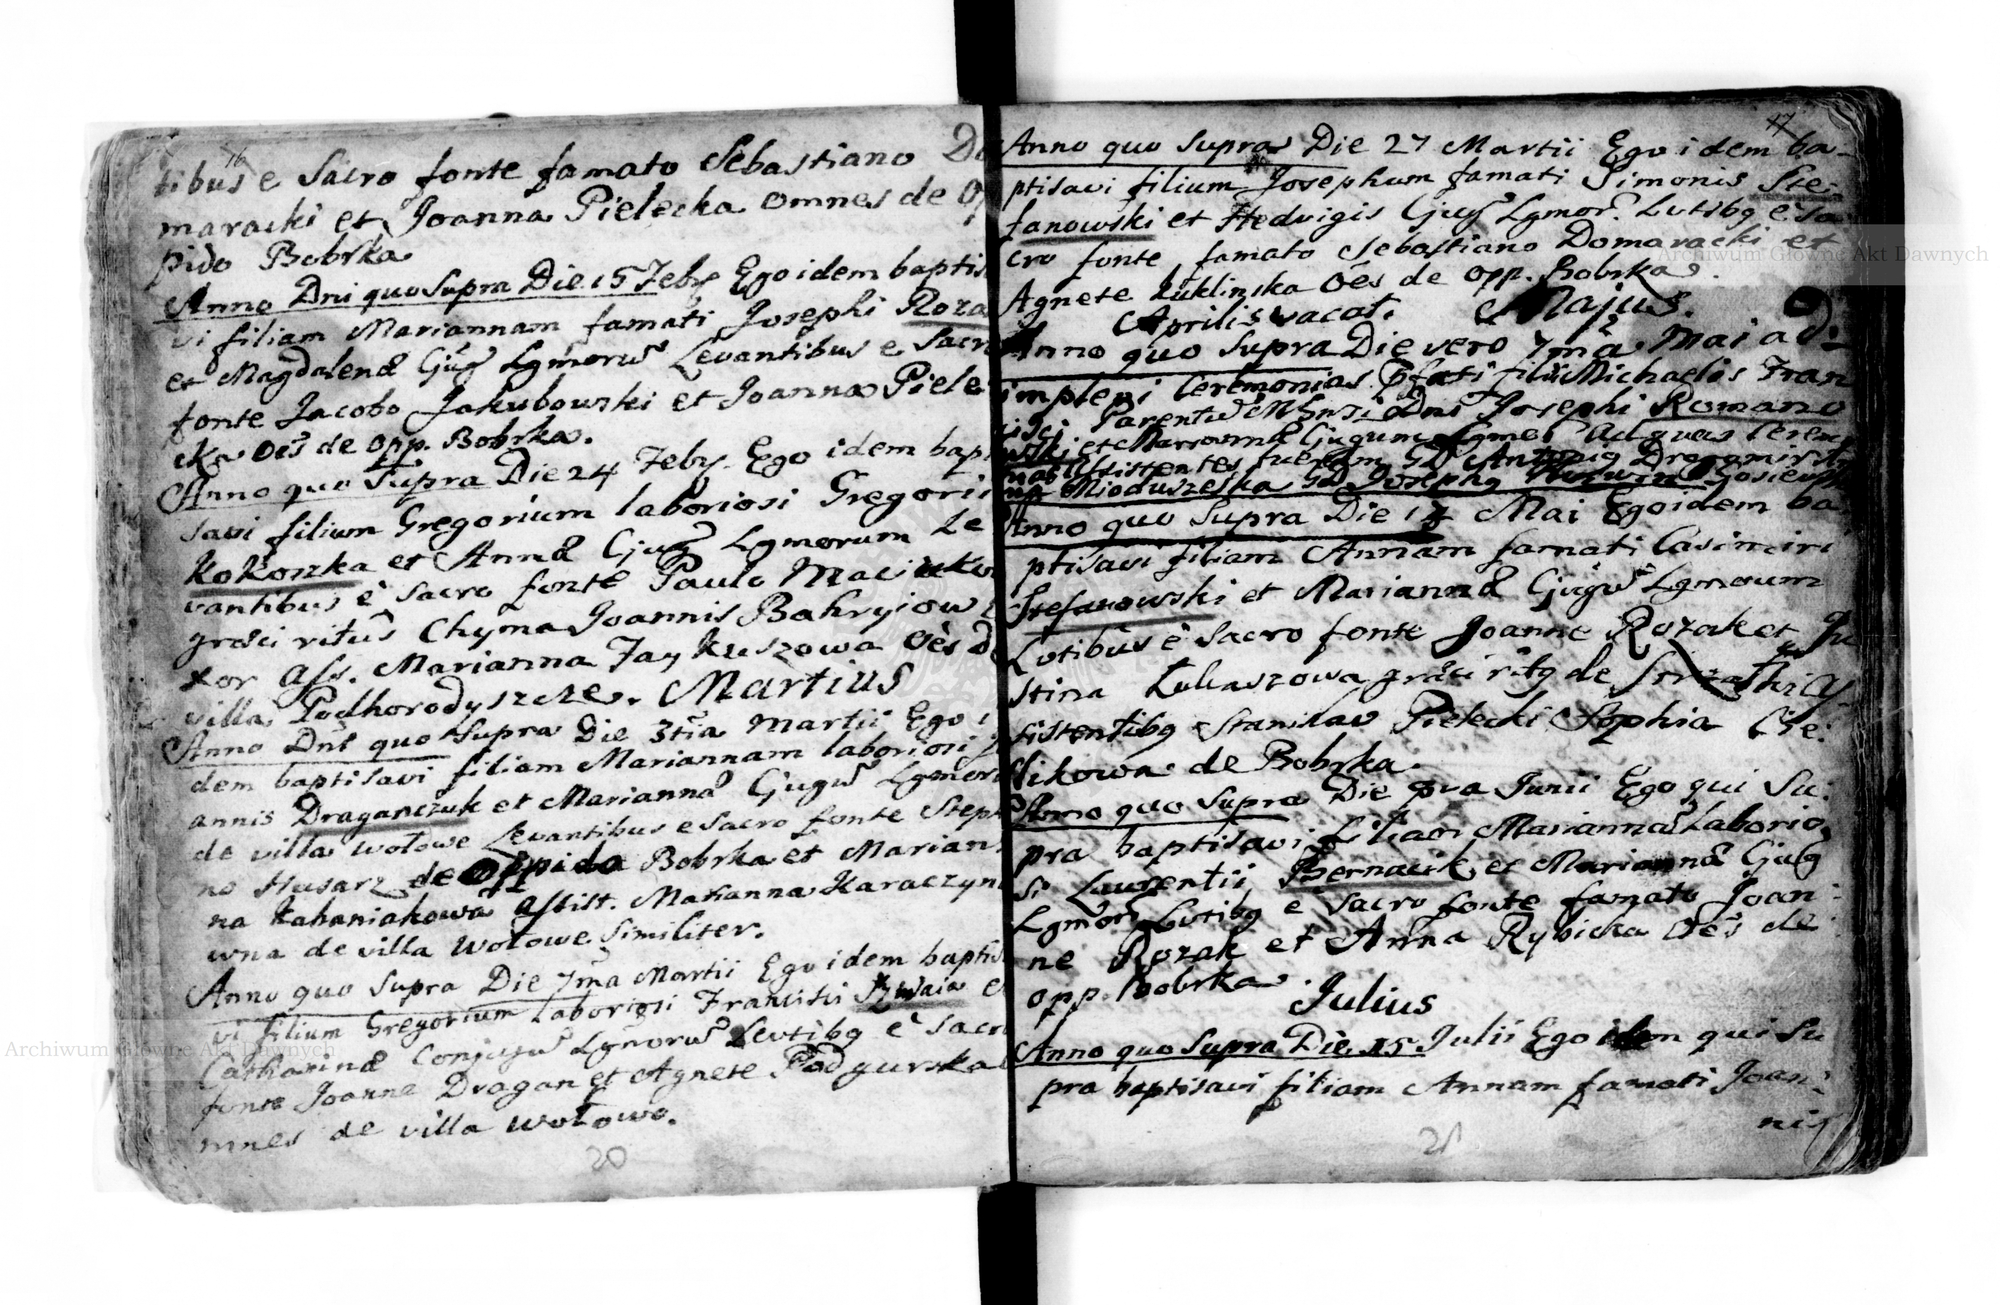 16
tibus e Sacro fonte famato Sebastiano Do
maracki et Joanna Pielecka omnes de Op
pido Bobrka
Anno Dni quo Supra Die 15 Feby Ego idem baptis
vi filiam Mariannam famati Josephi Roza
et Magdalenæ Cjug Lgmoru Levantibus e Sacro
fonte Jacobo Jakubowski et Joanna Piele
cka Oes de Opp. Bobrka.
Anno quo Supra Die 24 Feby. Ego idem bapt
savi filium Gregorium laboriosi Gregorii
Kokoszka et Annæ Cjug Lgmorum Le
vantibus è Sacro fonte Paulo
græci ritus Chyma Joannis
xor Ass. Marianna Oes d
villa Podhorodyszcze. Martius
Anno Dni quo Supra Die 3tia Martii Ego i
dem baptisavi filiam Mariannam laboriosi Jo
annis Draganczuk et Marianna Cjugu Lgmoru
de villa Wołowe Levantibus e Sacro fonte Steph
no Husarz de Oppido Bobrka et Marian
na Kahaniakowa Assist. Marianna Karaczyn
wna de villa Wołowe Similiter.
Anno quo Supra Die 7ma Martii Ego idem baptis
vi filium Gregorium laboriosi Francisci et
Catharinæ Conjugu Lgmoru Levtibg è Sacro
fonte Joanne Dragan et Agnete Podgurska O
mnes de villa Wołowe.
20
17
Anno quo Supra Die 27 Martii Ego idem ba-
ptisavi filium Josephum famati Simonis Ste-
fanowski et Hedvigis Cjug Lgmor. Lvtibg è Sa
cro fonte famato Sebastiano Domaracki et
Agnete Zuklinska Oes de Opp. Bobrka.
Aprilis vacat. Majus.
Anno quo Supra Die vero 7ma Mai ad-
impleni Ceremonias filii Michaelis Fran
cisci Parentu Dni Josephi Romano
wski et Mariannæ Cjugum Lgmor Ad quas Cerem
nias Assistentes fuerunt
Mioduszeska Josephg
Anno quo Supra Die 14 Mai Ego idem ba
ptisavi filiam Annam famati Casimiri
Stefanowski et Mariannæ Cjugu Lgmorum
Lvtibus è Sacro fonte Joanne Rozak et Ju
stina Łukaszowa græci ritg de As
sistentibg Stanislao Pielecki Sophia Cie-
slikowa de Bobrka.
Anno quo Supra Die pra Junii Ego qui Su-
pra baptisavi filiam Marianna Laborio
si Laurentii Bernacik et Mariannæ Cjug
Lgmor Lvtibg è Sacro fonte famato Joan-
ne Rozak et Anna Rybicka Oes de
opp. Bobrka.
Julius
Anno quo Supra Die 15 Julii Ego idem qui Su
pra baptisavi filiam Annam famati Joan-
nis
21
Archiwum Główne Akt Dawnych
Archiwum Główne Akt Dawnych